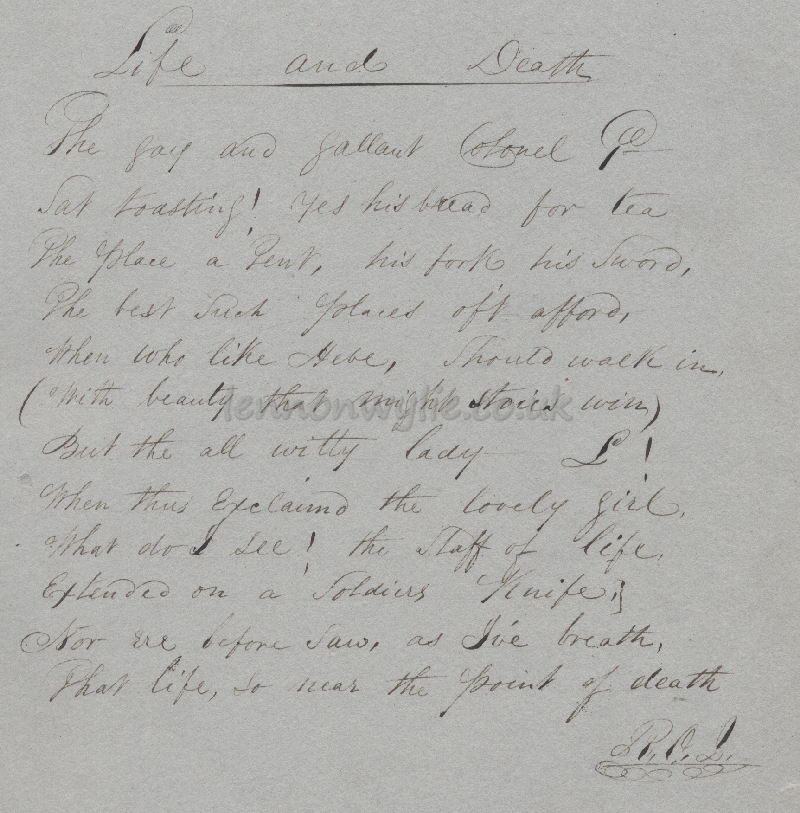 Life and Death
The gay and gallant Colonel P—
Sat toasting! Yes his bread for tea
The place a Tent, his fork his Sword,
The best Such places oft afford,
When who like Hebe, Should walk in,
(With beauty that might stoics win)
But the all witty lady L!
When thus Exclaimd the lovely girl,
What do I see! the Staff of life,
Extended on a Soldiers Knife,
Nor ere before saw, as I've breath,
That life, so near the point of death
R.C.I.
lennonwylie.co.uk